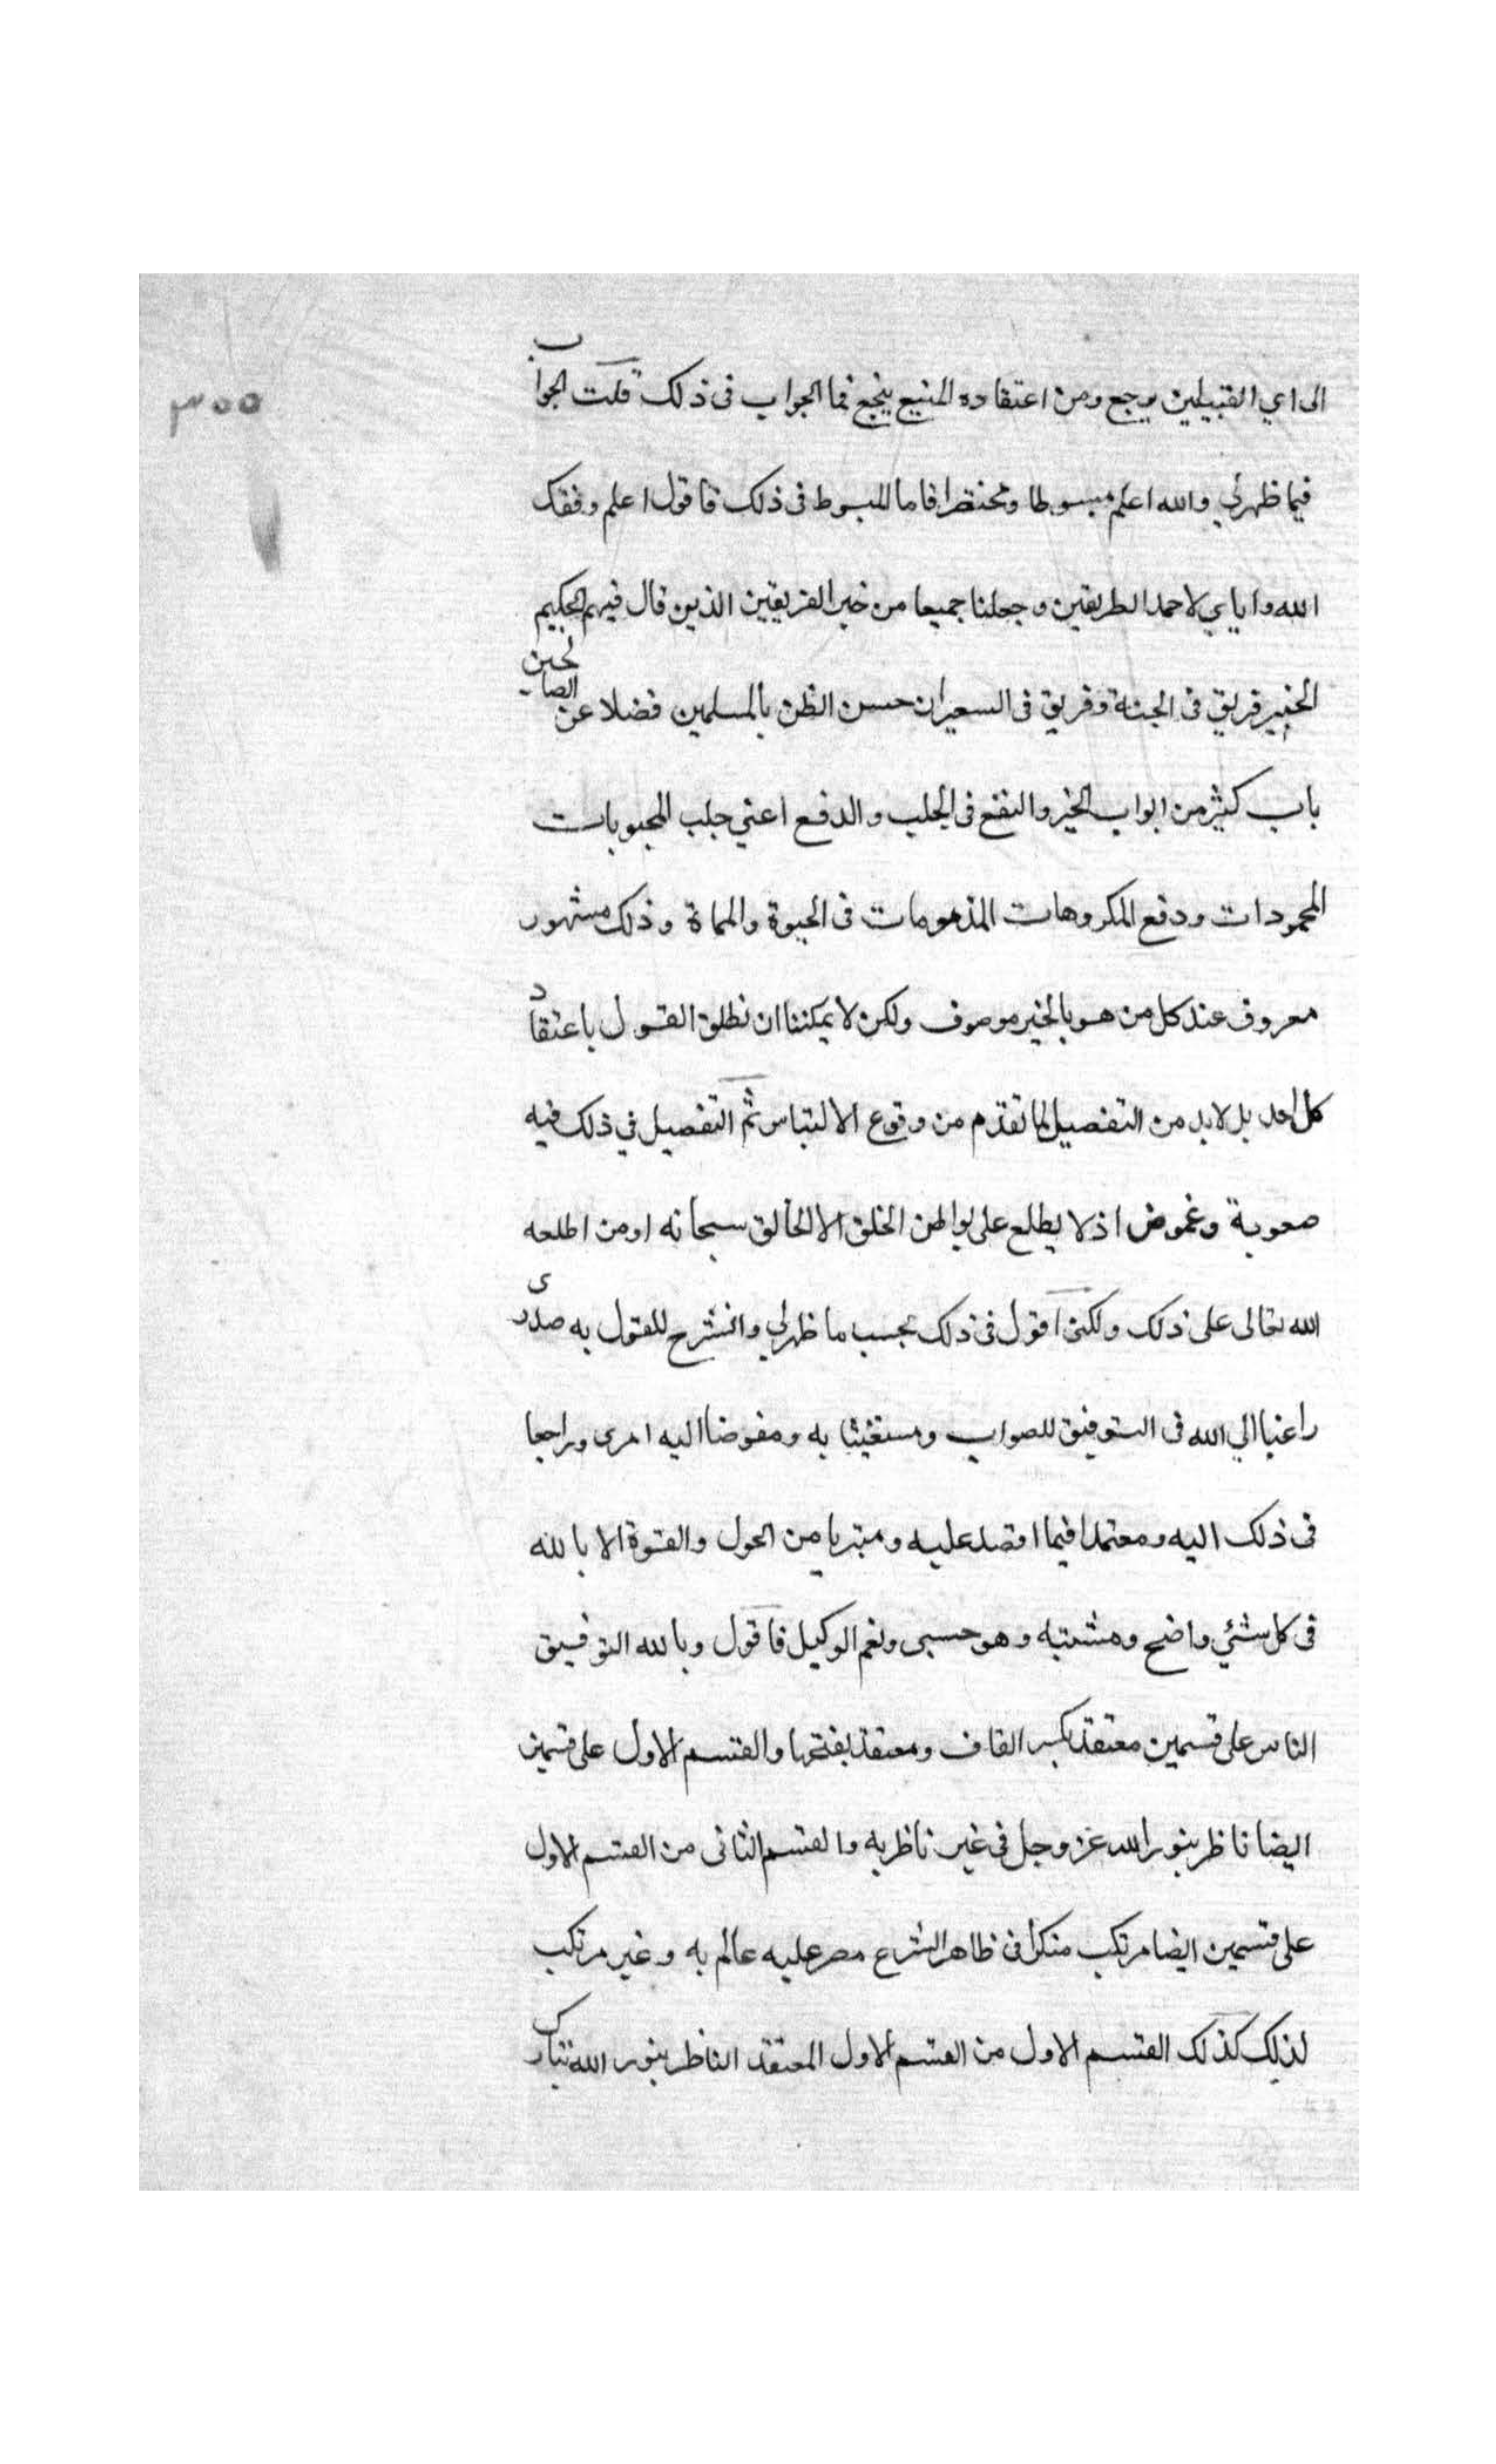 ٣٥٥
الى اي القبيلين يرجع ومن اعتقاده المنيع ينجع فما الجواب فى ذلك قلت الجواب
فيما ظهر لي والله اعلم مبسوطا ومختصرا فاما المبسوط فى ذلك فاقول اعلم وفقك
الله واياي لاحمد الطريقين وجعلنا جميعا من خير الفريقين الذين قال فيهم الحكيم
الخبير فريق فى الجنة وفريق فى السعير ان حسن الظن بالمسلمين فضلا عن الصالحين
باب كثير من ابواب الخير والنفع فى الجلب والدفع اعني جلب المحبوبات
المحمودات ودفع المكروهات المذمومات فى الحيوة والمماة وذلك مشهور
معروف عند كل من هو بالخير موصوف ولكن لا يمكننا ان نطلق القول باعتقاد
كل احد بل لا بد من التفصيل لما تقدم من وقوع الالتباس ثم التفصيل في ذلك فيه
صعوبة وغموض اذ لا يطلع على بواطن الخلق الا الخالق سبحانه او من اطلعه
الله تعالى على ذلك ولكنى اقول فى ذلك بحسب ما ظهر لي وانشرح للقول به صدرى
راغبا الي الله فى التوفيق للصواب ومستغيثا به ومفوضا اليه امرى وراجعا
فى ذلك اليه ومعتمدا فيما اقصد عليه ومتبريا من الحول والقوة الا بالله
فى كل شئي واضح ومشتبه وهو حسبى ونعم الوكيل فاقول وبالله التوفيق
الناس على قسمين معتقد بكسر القاف ومعتقد بفتحها والقسم الاول على قسمين
ايضا ناظر بنور الله عز وجل فى غير ناظر به والقسم الثانى من القسم الاول
على قسمين ايضا مرتكب منكرا فى ظاهر الشرع مصر عليه عالم به وغير مرتكب
لذلك كذلك القسم الاول من القسم الاول المعتقد الناظر بنور الله تبارك